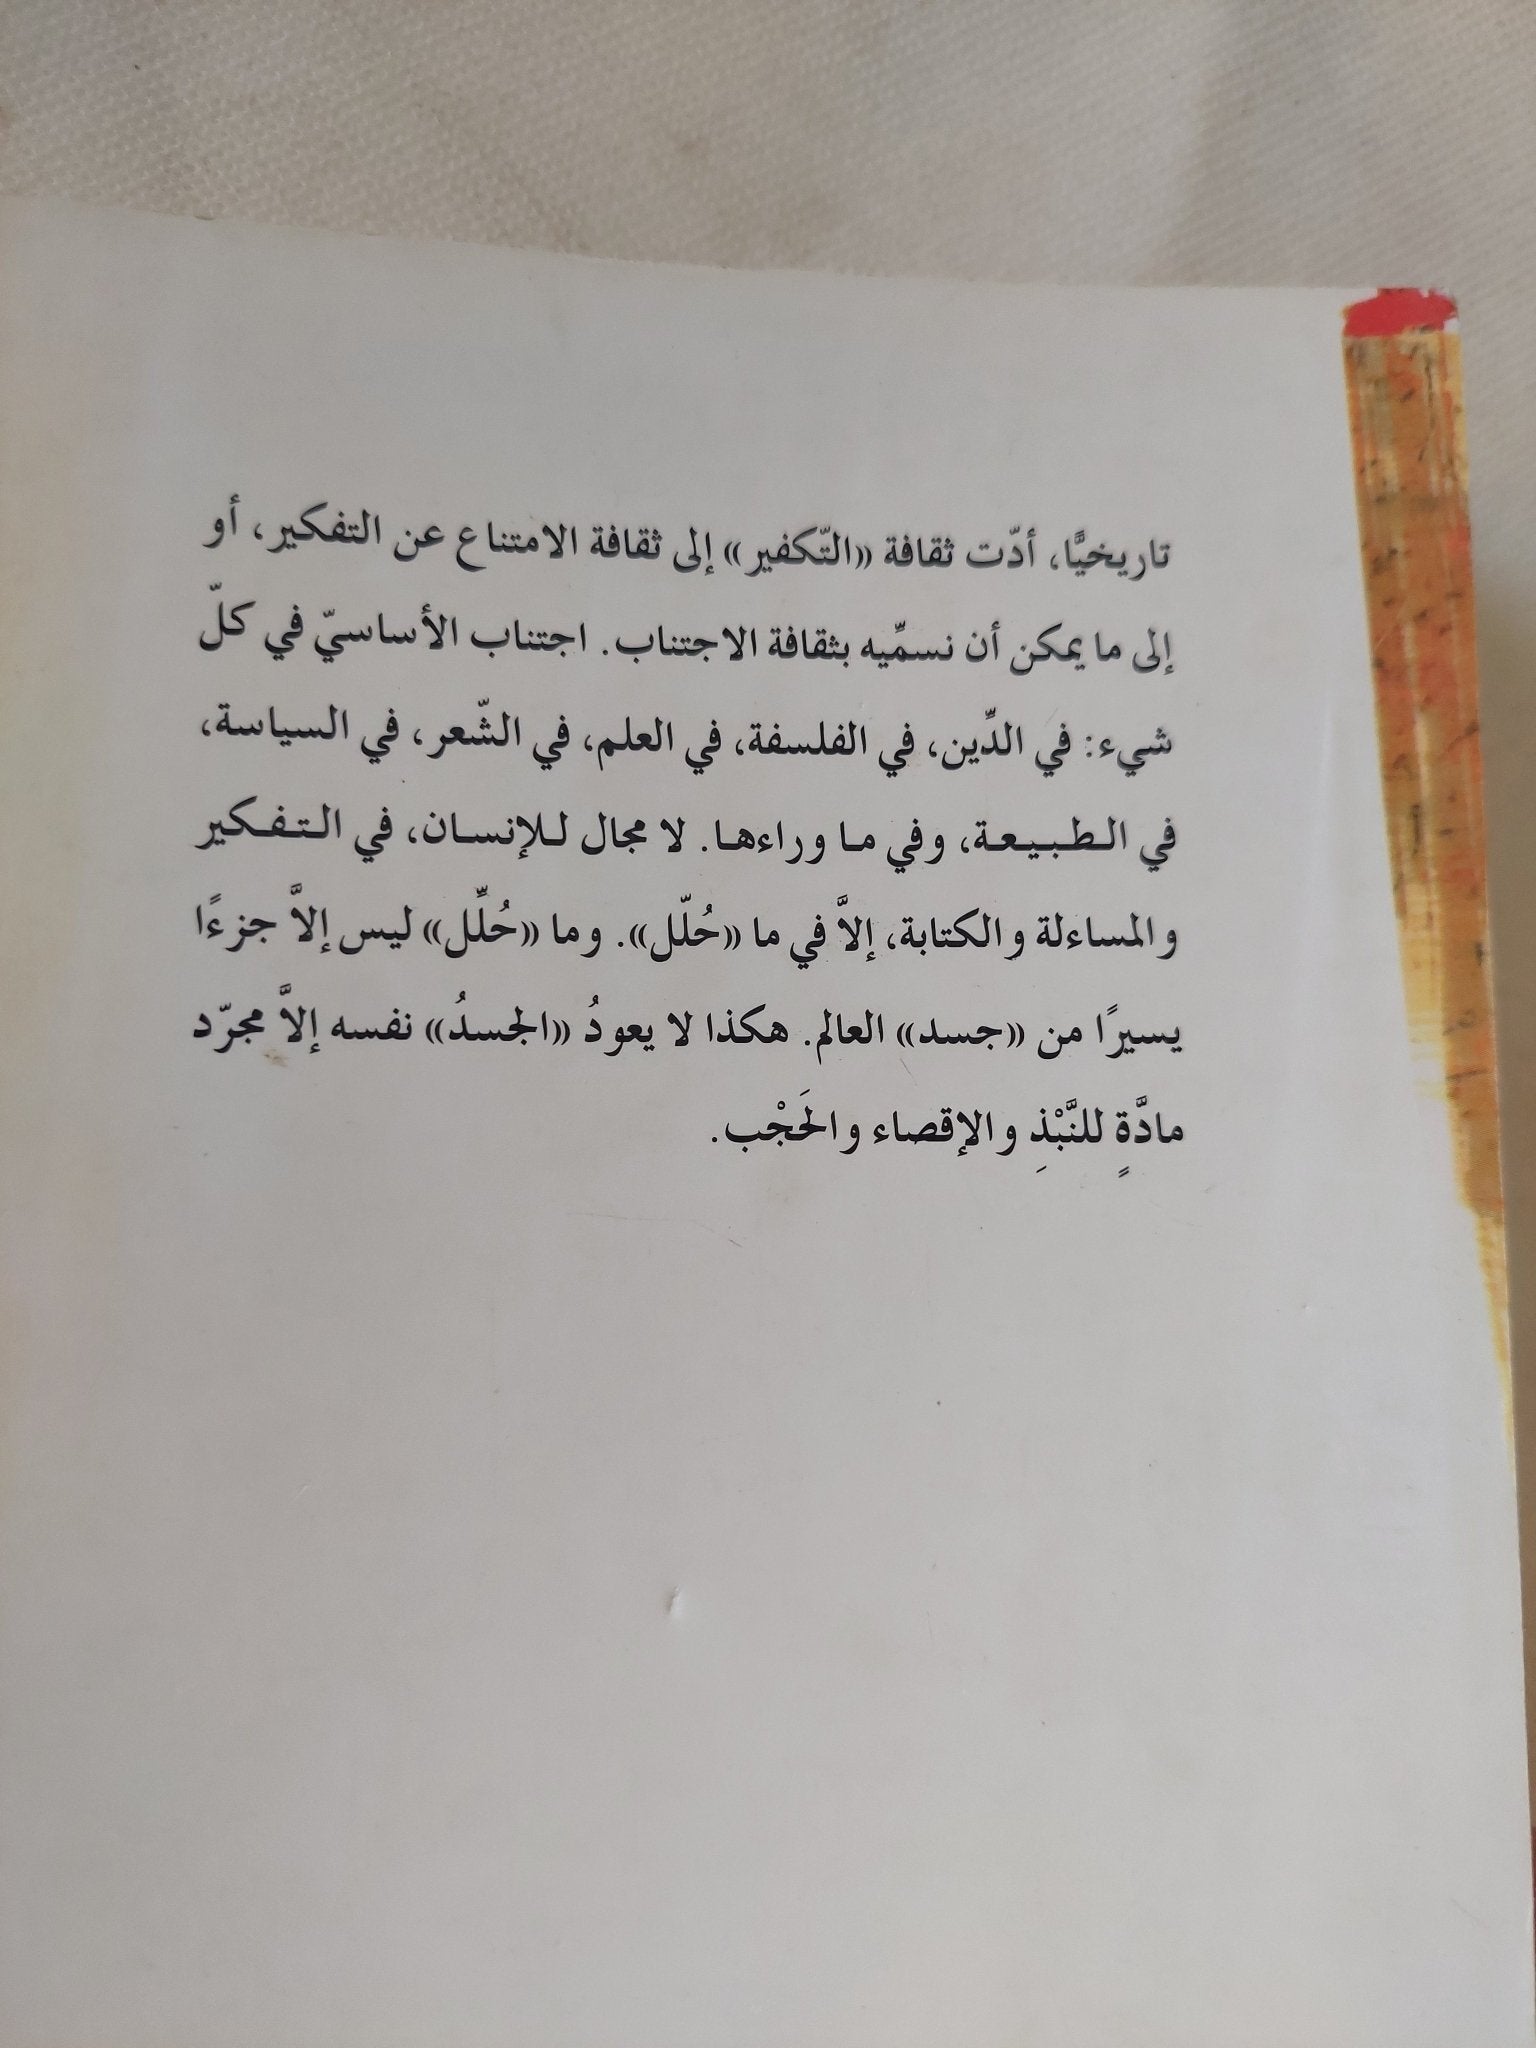 تاريخيًّا، أدّت ثقافة «التّكفير» إلى ثقافة الامتناع عن التفكير، أو
إلى ما يمكن أن نسمِّيه بثقافة الاجتناب. اجتناب الأساسيّ في كلّ
شيء: في الدِّين، في الفلسفة، في العلم، في الشّعر، في السياسة،
في الـطـبـيـعـة، وفي مـا وراءهـا. لا مجال لـلإنسـان، في الـتـفـكـير
والمساءلة والكتابة، إلاَّ في ما «حُلّل». وما «حُلِّل» ليس إلاَّ جزءًا
يسيرًا من «جسد» العالم. هكذا لا يعودُ «الجسدُ» نفسه إلاَّ مجرّد
مادَّةٍ للنَّبْذِ والإقصاء والحَجْب.